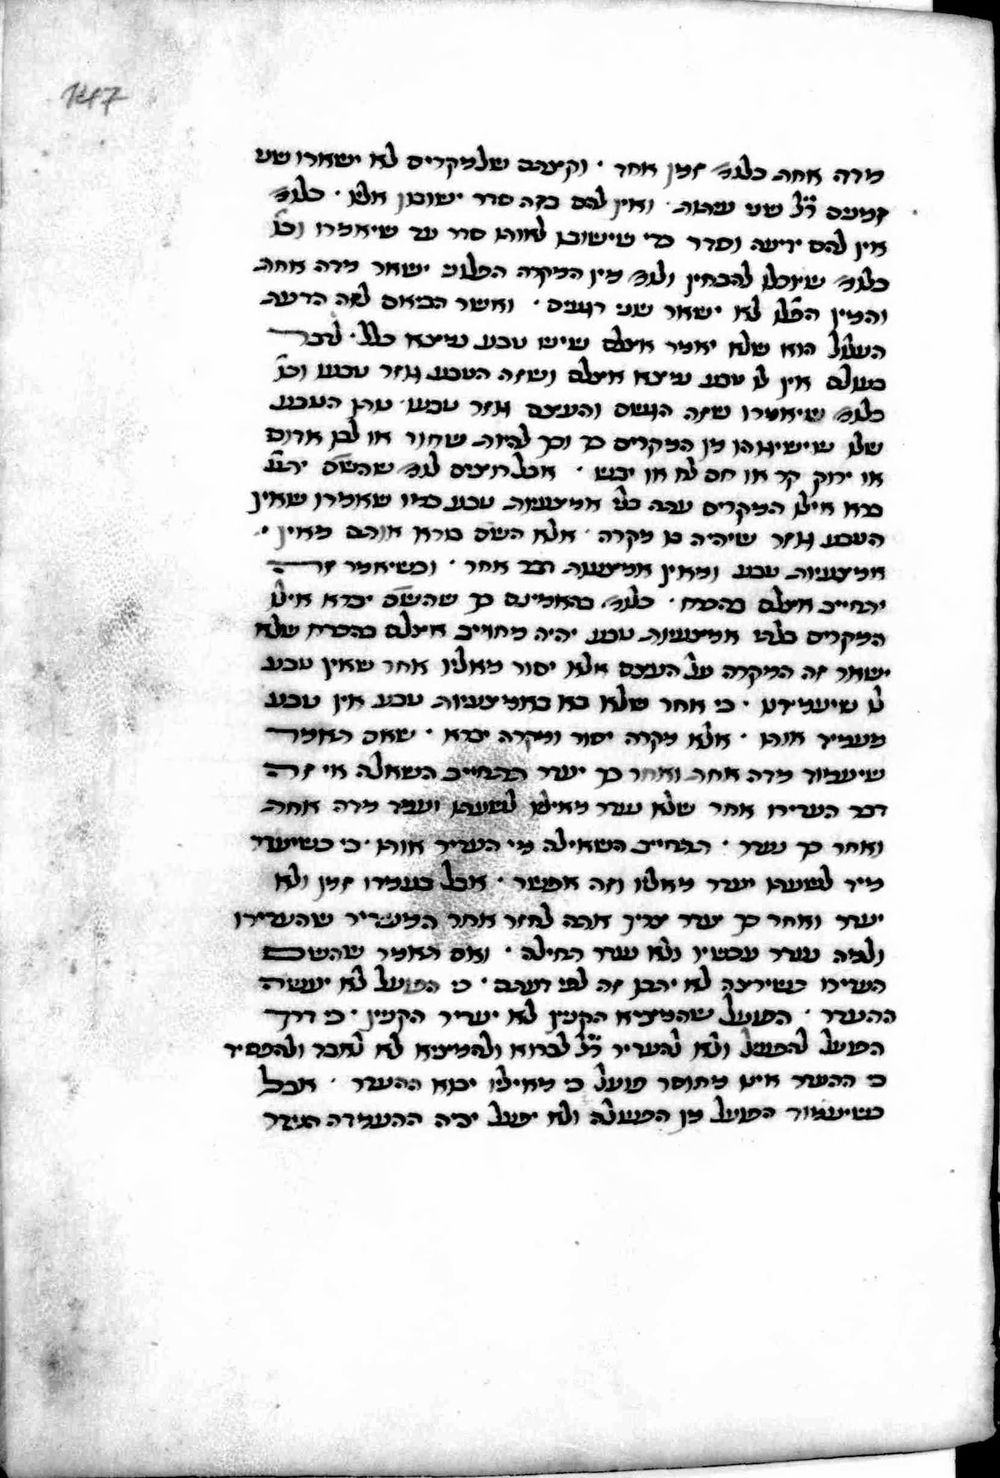 147
מדה אחת כלומ' זמן אחד · וקצתם שלמקרים לא ישארו שני
זמנים ר"ל שני עתות · ואין להם בזה סדר ישובון אליו · כלומ'
אין להם ידיעה וסדר כדי שישובו לאותו סדר עד שיאמרו וכו'
כלומ' שיוכלו להבחין ולומ' מין המקרה הפלוני ישאר מדה אחת
והמין הפלו' לא ישאר שני רגעים · ואשר הביאם לזה הדעת
העולל הוא שלא יאמר אצלם שיש טבע נמצא כלל · לדבר
בעולם אין לו טבע נמצא אצלם ושזה הטבע גוזר טבעו וכו'
כלומ' שיאמרו שזה הגשם והעצם גוזר טבעו נותן הטבע
שלו שישיגוהו מן המקרים כך וכך להיות שחור או לבן אדום
או ירוק קר או חם לח או יבש · אבל רוצים לומ' שהשם ית'
ברא אילו המקרים עתה בלי אמצעות טבע כמו שאמרו שאין
הטבע גוזר שיהיה בו מקרה · אלא השם בורא אותם מאין
אמצעיות טבע ומאין אמצעות דבר אחר · וכשיאמר זה
יתחייב אצלם בהכרח · כלומ' בהאמינם כך שהשם יברא אילו
המקרים בלתי אמצעיות טבע יהיה מחוייב אצלם בהכרח שלא
ישאר זה המקרה על העצם אלא יסור מאליו אחר שאין טבע
לו שיעמידהו · כי אחר שלא בא באמצעיות טבע אין טבע
מעמיד אותו · אלא מקרה יסור ומקרה יברא · שאם תאמר
שיעמוד מדה אחת ואחר כך יעדר תתחייב השאלה אי זה
דבר העדירו אחר שלא נעדר מאליו לשעתו ועמד מדה אחת
ואחר כך נעדר · תתחייב השאילה מי העדיר אותו · כי כשיעדר
מיד לשעתו יעדר מאליו וזה אפשר · אבל בעמדו זמן ולא
יעדר ואחר כך יעדר צריך אתה לחזר אחר המעדיר שהעדירו
ולמה נעדר עכשיו ולא נעדר תחילה · ואם תאמר שהשם
העדירו כשירצה לא יתכן זה לפי דעתם · כי הפועל לא יעשה
ההעדר · הפועל שהמציא הקנין לא יעדיר הקנין · כי דרך
הפועל להפעל ולא להעדיר ר"ל לברוא ולהמציא לא לאבד ולהפסיד
כי ההעדר אינו מחוסר פועל כי מאיליו יבוא ההעדר · אבל
כשיעמוד הפועל מן הפעולה ולא יפעל יהיה ההעמדה העדר